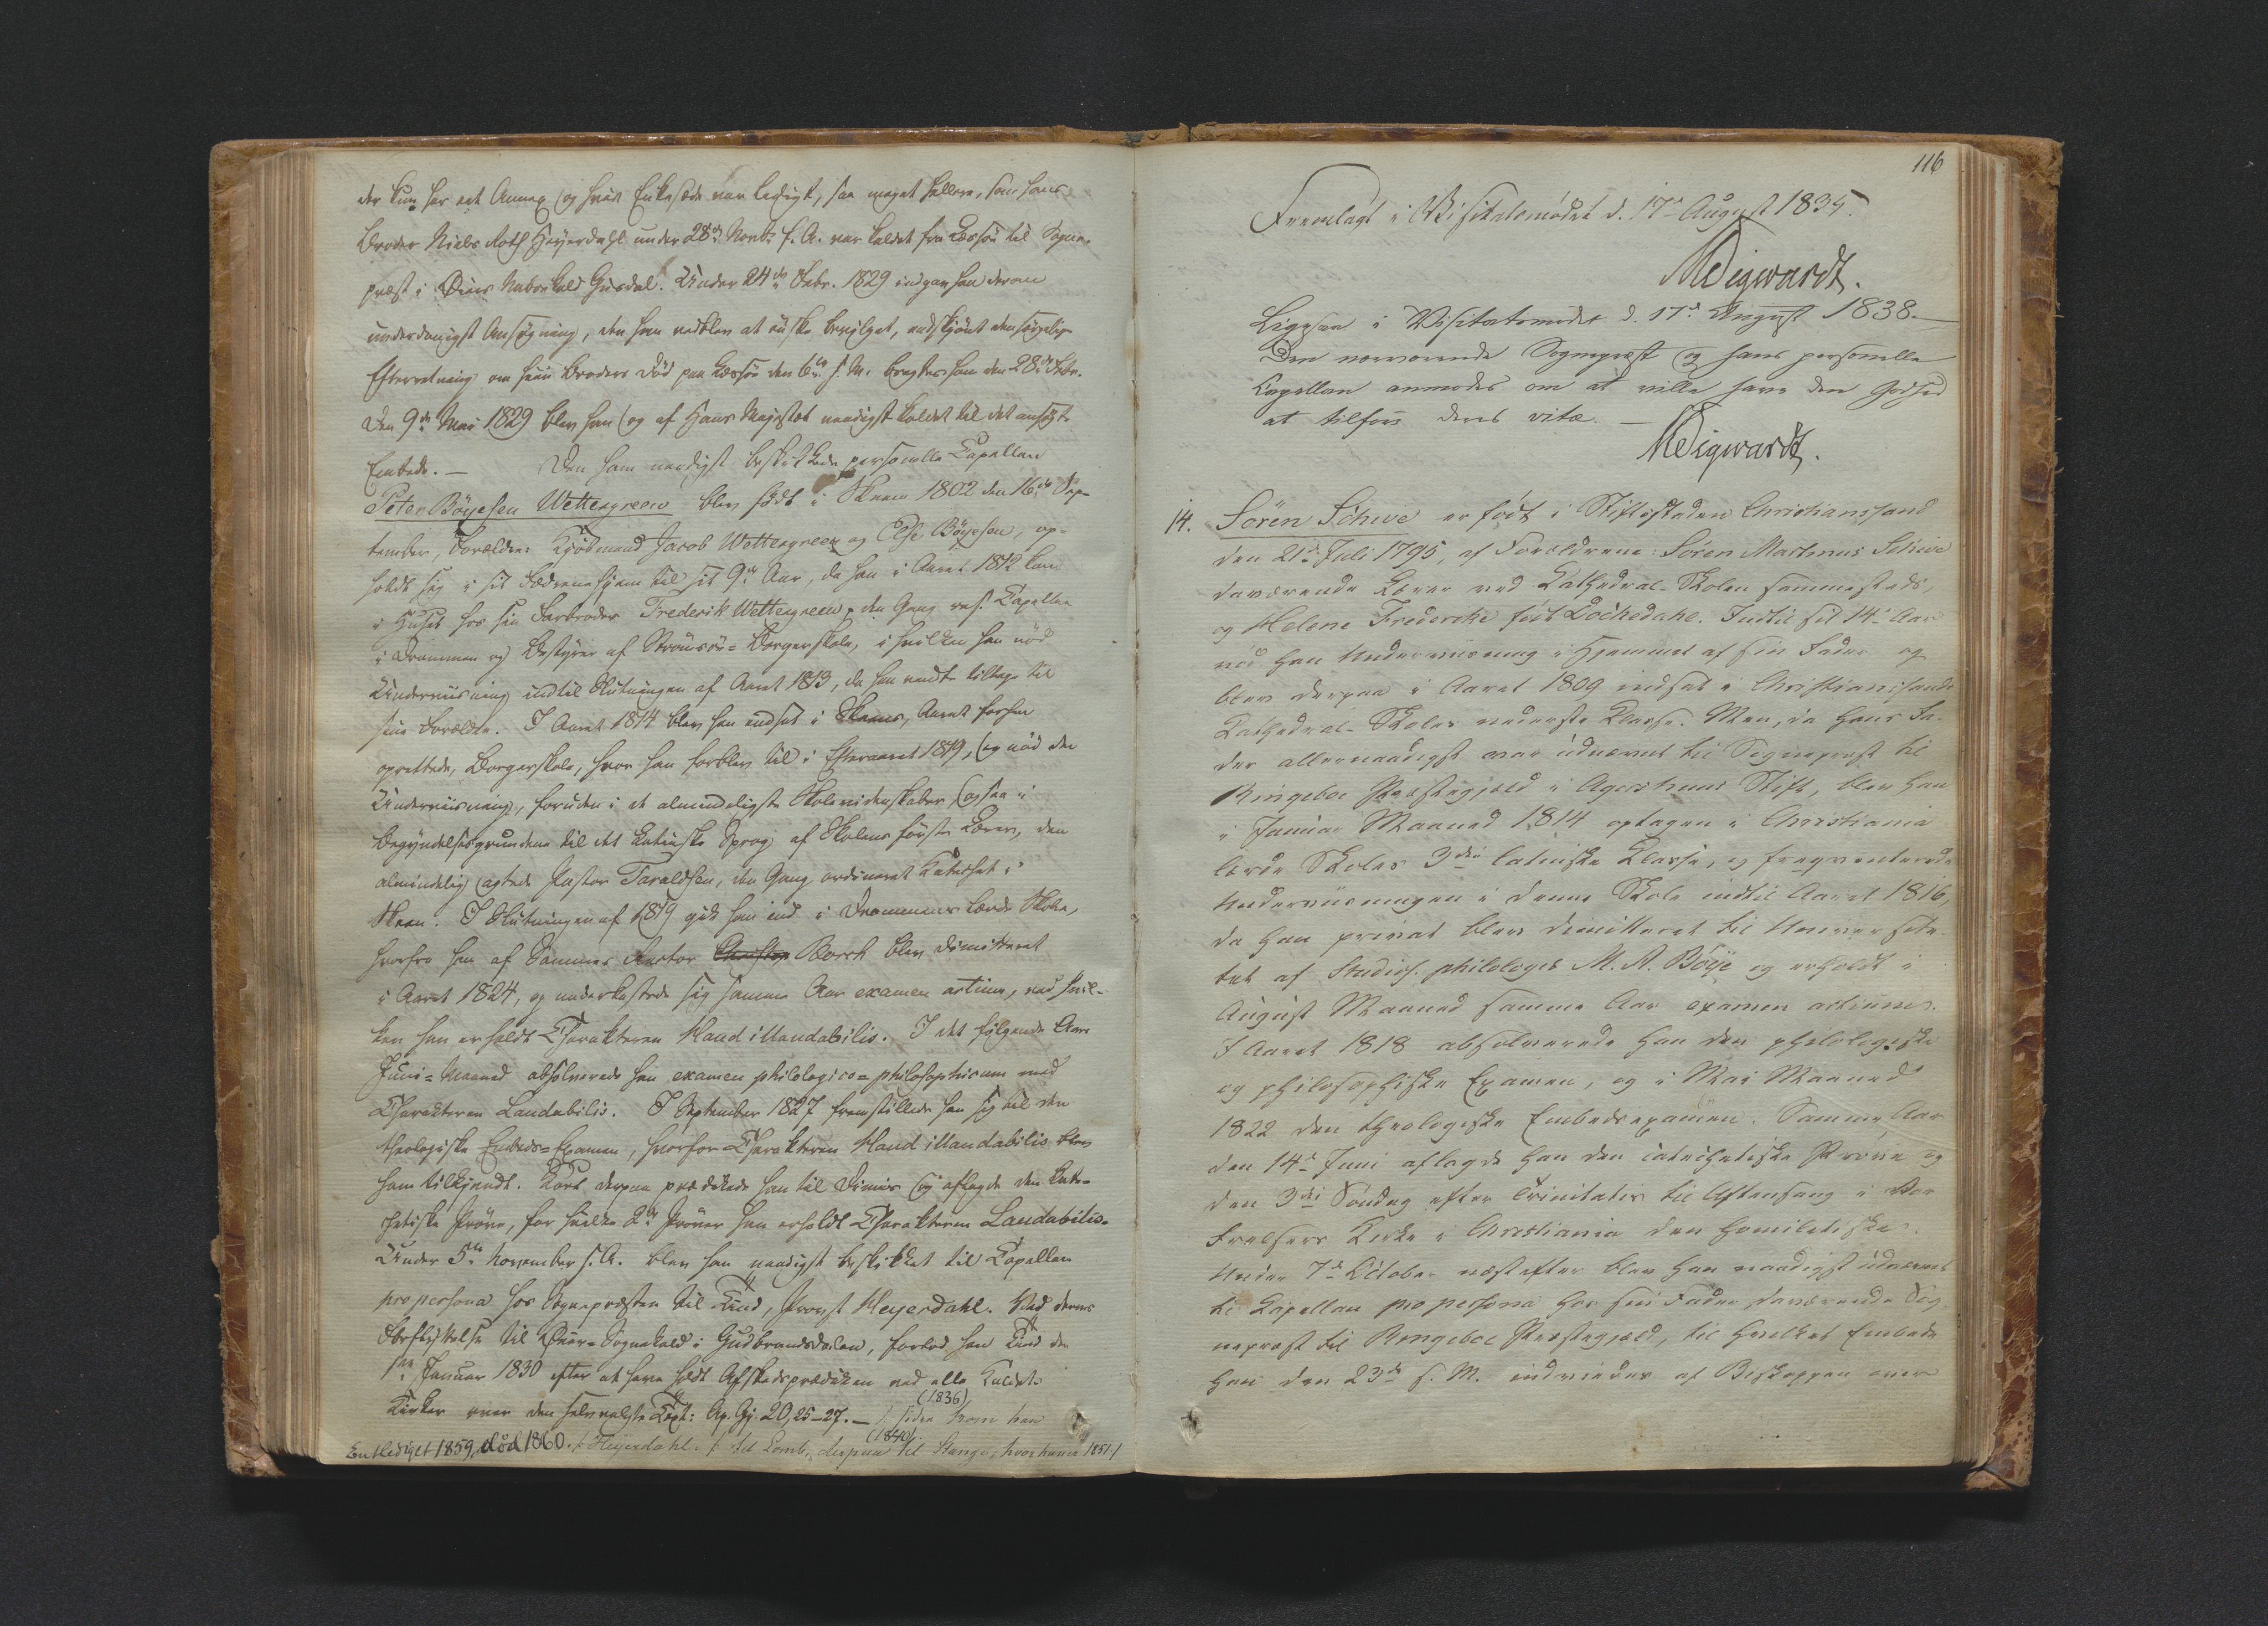 der kun har eet Annex og hvis Enkesæde var ledigt, saa meget hellere, som hans
Broder Niels Roth Heyerdahl under 28de Novbr. f. A. var kaldet fra Lessøe til Sogne-
præst i Øiers Nabokald Gusdal. Under 24de Febr. 1829 indgav han derom
underdanigst Ansøgning, den han vedblev at ønske bevilget, endskjønt den sørgelige
Efterretning om hiin Broders Død paa Lessøe den 6te s. M. bragtes ham den 28de Febr.
Den 9de Mai 1829 blev han og af Hans Majestæt naadigst kaldet til det ansøgte
Embede. — Den ham naadigst beskikkede personelle Capellan
Peter Böyesen Wettergreen blev født i Skeen 1802 den 16de Sep-
tember, Forældre: Kjøbmand Jacob Wettergreen og Else Böyesen, op-
holdt sig i sit Fædrenehjem til sit 9de Aar, da han i Aaret 1812 kom
i Huset hos sin Farbroder Frederik Wettergreen, den Gang res. Capellan
i Drammen og Bestyrer af Strømsøe-Borgerskole, i hvilken han nød
Underviisning indtil Slutningen af Aaret 1813, da han vendte tilbage til
sine Forældre. I Aaret 1814 blev han indsat i Skeens, Aaret forhen
oprettede, Borgerskole, hvor han forblev til i Efteraaret 1819, og nød der
Underviisning, foruden i de almindeligste Skolevidenskaber, ogsaa i
Begyndelsesgrundene til det Latinske Sprog af Skolens første Lærer, den
almindelig agtede Pastor Taraldsen, den Gang ordineret Katechet i
Skeen. I Slutningen af 1819 gik han ind i Drammens lærde Skole,
hvorfra han af Sammes Rector Borch blev dimitteret
i Aaret 1824, og underkastede sig samme Aar examen artium, ved hvil-
ken han erholdt Charakteren Haud illaudabilis. I det følgende Aars
Juni-Maaned absolverede han examen philologico-philosophicum med
Charakteren Laudabilis. I September 1827 fremstillede han sig til den
theologiske Embeds-Examen, hvorfor Charakteren Haud illaudabilis blev
ham tilkjendt. Kort derpaa prædikede han til Dimis og aflagde den kate-
chetiske Prøve, for hvilke 2de Prøver han erholdt Charakteren Laudabilis.
Under 5te November s. A. blev han naadigst beskikket til Capellan
pro persona hos Sognepræsten til Lund, Provst Heyerdahl. Ved dennes
Forflyttelse til Øiers Sognekald i Gudbrandsdalen, forlod han Lund den
1ste Januar 1830 efter at have holdt Afskedsprædiken ved alle Kaldets
Kirker over den selvvalgte Text: Ap. Gj. 20, 25-27. — /: siden kom han
(1836)
/: Heyerdahl :/ til Lomb, derpaa til Stange, hvor han er 1851 :/
(1840)
Entlediget 1859, død 1860.
116
Fremlagt i Visitatsmødet d. 17de August 1835.
Sigwardt.
Ligesaa i Visitatsmødet d. 17de August 1838.
Den nærværende Sognepræst og hans personelle
Capellan anmodes om at ville have den Godhed
at tilføie deres vita. —
Sigwardt.
14. Sören Schive er født i Stiftsstaden Christianssand
den 21de Juli 1795, af Forældrene: Sören Martinus Schive
daværende Lærer ved Kathedral-Skolen sammesteds,
og Helene Frederike født Lochedahl. Indtil sit 14de Aar
nød han Underviisning i Hjemmet af sin Fader og
blev derpaa i Aaret 1809 indsat i Christianssands
Kathedral-Skoles nederste Klasse. Men, da hans Fa-
der allernaadigst var udnævnt til Sognepræst til
Ringeboe Præstegjæld i Agershuus Stift, blev han
i Januar Maaned 1814 optagen i Christiania
lærde Skoles 3die latinske Klasse, og frequenterede
Underviisningen i denne Skole indtil Aaret 1816,
da han privat blev dimitteret til Universite-
tet af Studios. philologiæ M. A. Böye og erholdt i
August Maaned samme Aar examen artium.
I Aaret 1818 absolverede han den philologiske
og philosophiske Examen, og i Mai Maaned
1822 den theologiske Embedsexamen. Samme Aar
den 14de Juni aflagde han den catechetiske Prøve og
den 3die Søndag efter Trinitatis til Aftensang i Vor
Frelsers Kirke i Christiania den homiletiske.
Under 7de October næstefter blev han naadigst udnævnt
til Capellan pro persona hos sin Fader, daværende Sog-
nepræst til Ringeboe Præstegjæld, til hvilket Embede
han den 23de s. M. indviedes af Biskoppen over